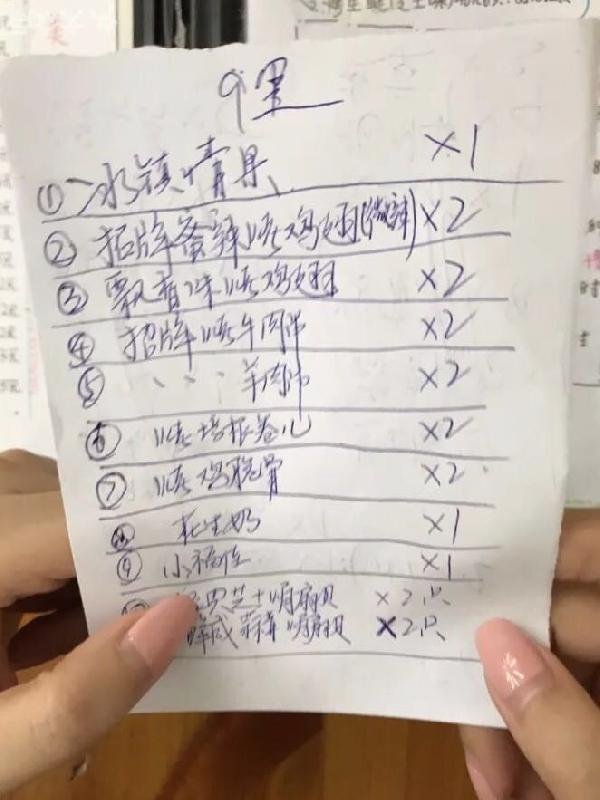 9里
① 冰镇青果 ×1
② 招牌蜜辣烤鸡翅(微辣) ×2
③ 飘香味烤鸡翅 ×2
④ 招牌烤牛肉串 ×2
⑤ 、、、羊肉串 ×2
⑥ 烤培根卷儿 ×2
⑦ 烤鸡脆骨 ×2
⑧ 花生奶 ×1
⑨ 小 ×1
芝士焗扇贝 ×2只
咸蒜蓉焗扇贝 ×2只